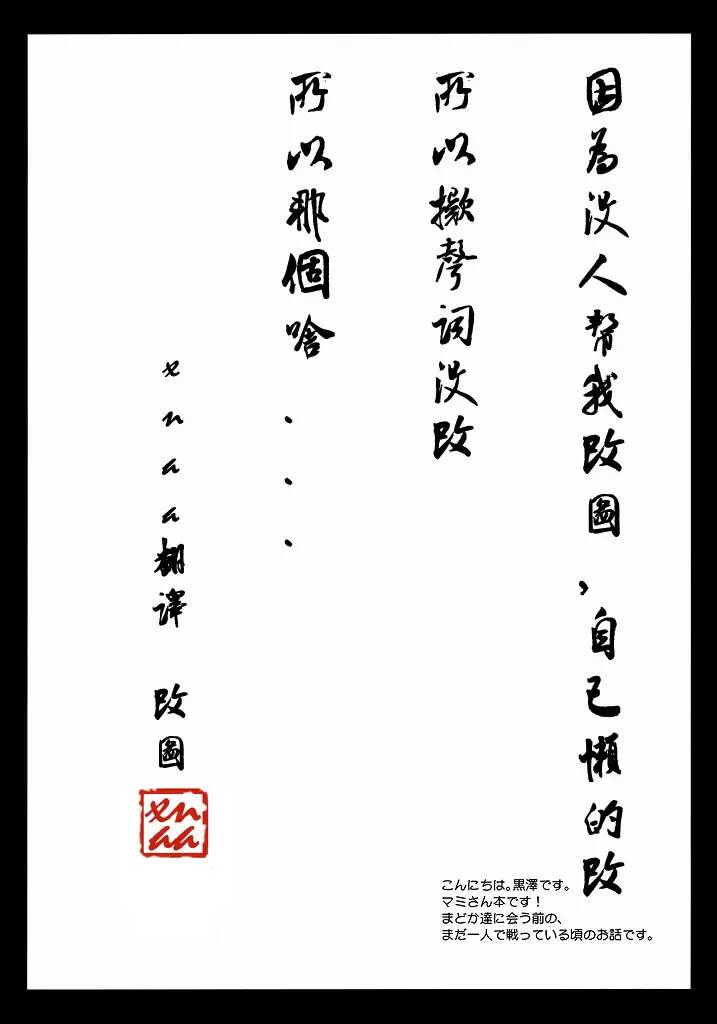 因為沒人幫我改圖，自己懶的改
所以擻聲詞沒改
所以那個啥...
xnaa翻譯 改圖
xn
aa
こんにちは。黒澤です。
マミさん本です！
まどか達に会う前の、
まだ一人で戦っている頃のお話です。